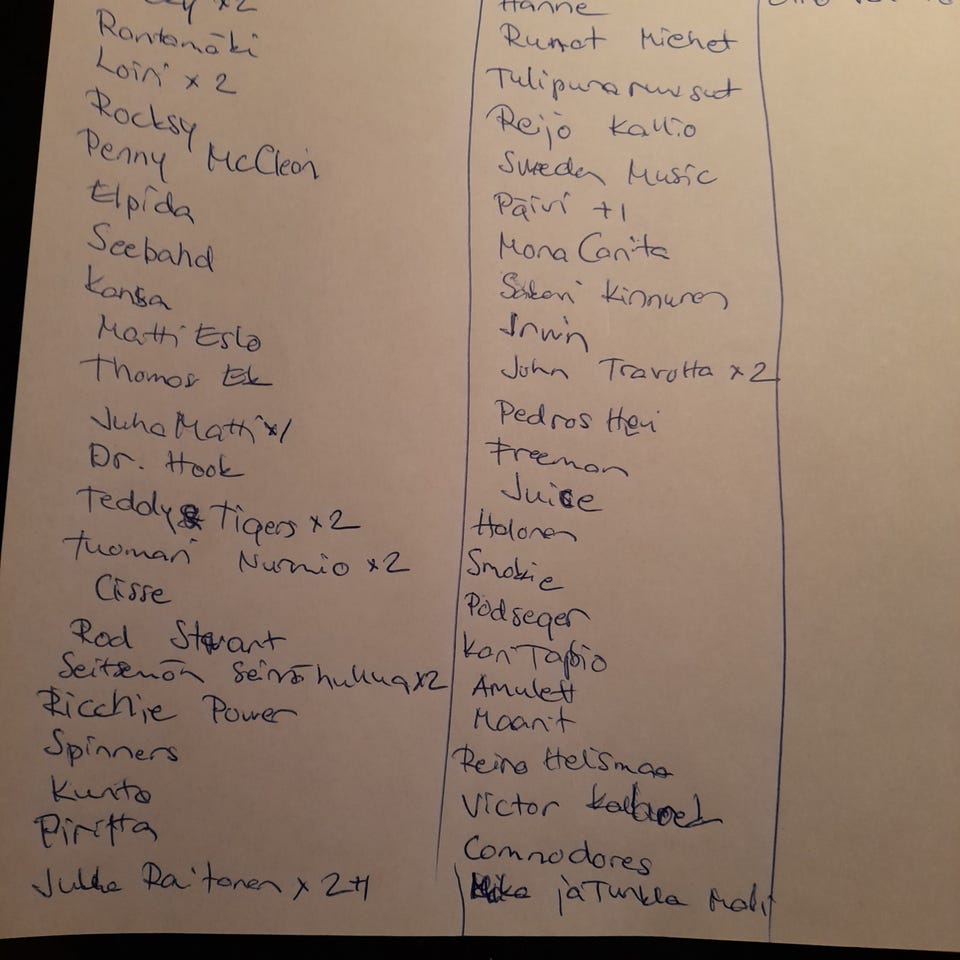 x2
Rantamäki
Loiri x 2
Rocksy
Penny McCleon
Elpida
Seebahd
Kansa
Matti Eslo
Thomas Ek
Juha Matti x1
Dr. Hook
Teddy & Tigers x2
Tuomari Nurmio x2
Cisse
Rod Stewart
Seitsemän Seinähullua x2
Ricchie Power
Spinners
Kunto
Piritta
Jukka Raitanen x 2+1
Hanne
Rumat Miehet
Tulipunaruusut
Reijo Kallio
Sweden Music
Päivi +1
Mona Carita
Sakari Kinnunen
Irwin
John Travotta x2
Pedros Hevi
Freeman
Juice
Halonen
Smokie
Podseger
Kari Tapio
Amulett
Maarit
Reino Helismaa
Victor
Commodores
ja Turkka Mali